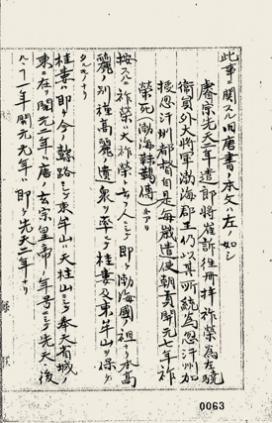 此事ニ関スル旧唐書ノ本文ハ左ノ如シ
睿宗先天二年遣郎将崔訢往冊拝祚榮為左驍
衛員外大將軍渤海郡王仍以其所統為忽汗州加
授忽汗州都督自是每歳遣使朝貢開元七年祚
榮死（渤海靺鞨傳ニアリ）
按スルニ祚榮ハ大祚榮ト云フ人ニシテ即チ渤海國ノ祖ナリ本高
麗ノ別種高麗ノ遺衆ヲ率ヰテ桂婁及東牟山ヲ保ツ
タルモノナリ
桂婁ハ即チ今ノ ニシテ東牟山ハ天柱山ニシテ奉天省城ノ
東ニ在リ開元二年ハ唐ノ玄宗皇帝ノ年号ニシテ先天後
ノ 年開元元年ハ即チ先天二年ナリ
0063